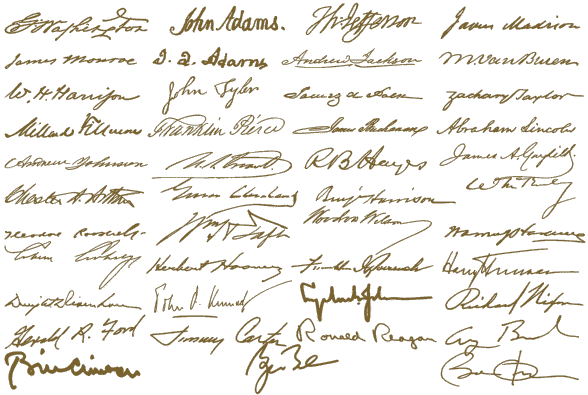 G Washington John Adams. Th: Jefferson James Madison
James Monroe J. Q. Adams Andrew Jackson M Van Buren
W. H. Harrison John Tyler James K Polk Zachary Taylor
Millard Fillmore Franklin Pierce James Buchanan Abraham Lincoln
Andrew Johnson U. S. Grant R B Hayes James A. Garfield
Chester A. Arthur Grover Cleveland Benj Harrison Wm McKinley
Theodore Roosevelt Wm H Taft Woodrow Wilson Warren G Harding
Calvin Coolidge Herbert Hoover Franklin D Roosevelt Harry Truman
Dwight D Eisenhower John F. Kennedy Lyndon B Johnson Richard Nixon
Gerald R. Ford Jimmy Carter Ronald Reagan G Bush
Bill Clinton